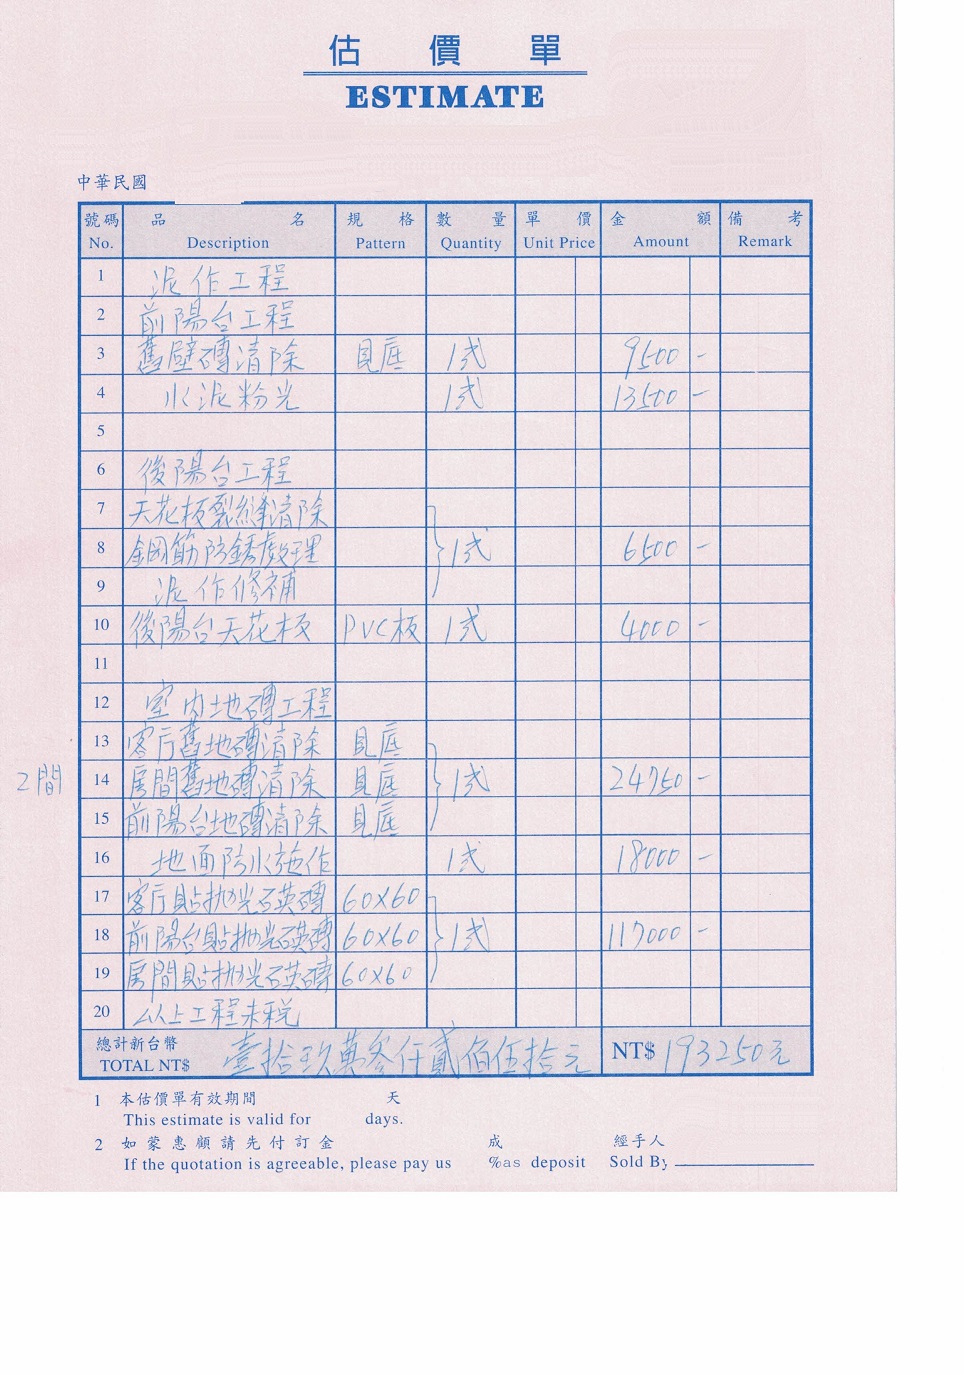 估價單
ESTIMATE
中華民國
號碼 品名 規格 數量 單價 金額 備考
No. Description Pattern Quantity Unit Price Amount Remark
1 泥作工程
2 前陽台工程
3 舊壁磚清除 見底 1式 9500 -
4 水泥粉光 1式 13500 -
5
6 後陽台工程
7 天花板裂縫清除
8 鋼筋防銹處理 1式 6500 -
9 泥作修補
10 後陽台天花板 PVC板 1式 4000 -
11
12 室內地磚工程
13 客厅舊地磚清除 見底
2間 14 房間舊地磚清除 見底 1式 24750 -
15 前陽台地磚清除 見底
16 地面防水施作 1式 18000 -
17 客厅貼拋光石英磚 60X60
18 前陽台貼拋光石英磚 60X60 1式 117000 -
19 房間貼拋光石英磚 60X60
20 以上工程未稅
總計新台幣 壹拾玖萬參仟貳佰伍拾元 NT$ 193250元
TOTAL NT$
1 本估價單有效期間 天
This estimate is valid for days.
2 如蒙惠顧請先付訂金 成 經手人
If the quotation is agreeable, please pay us %as deposit Sold By